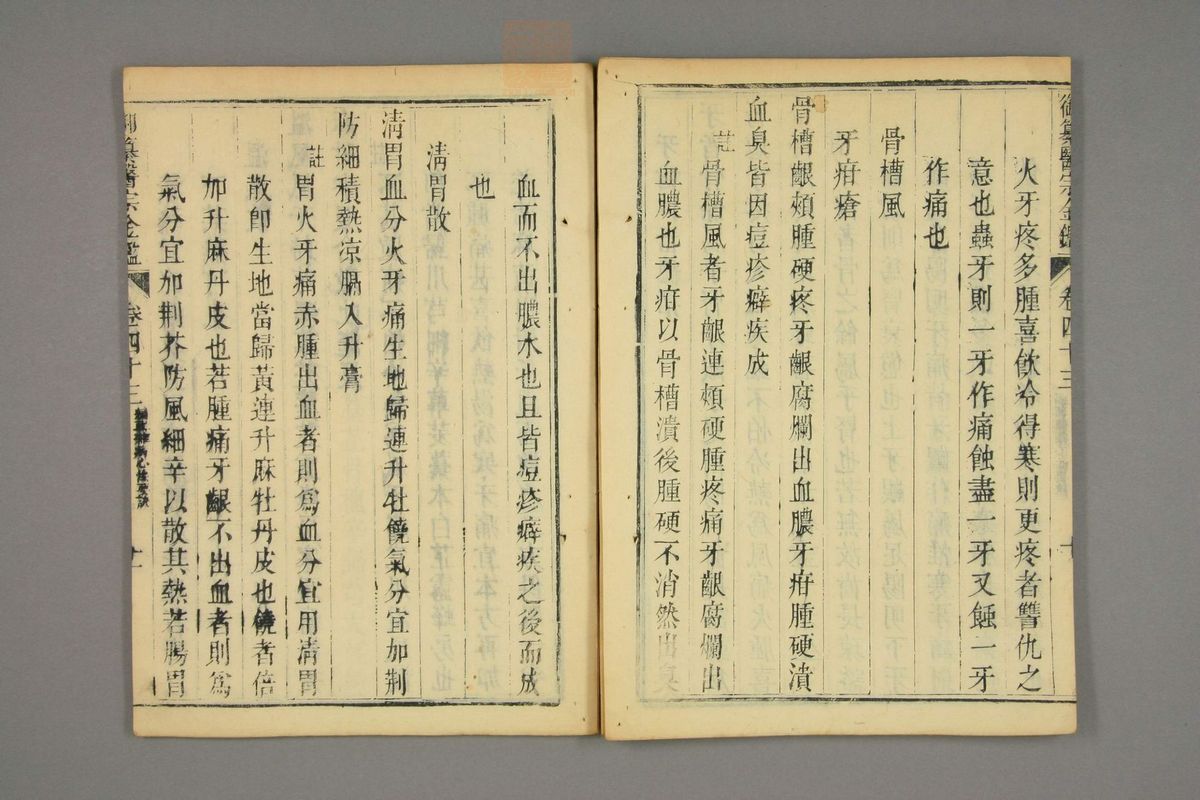 御纂醫宗金鑑 卷四十三 十
火牙疼多腫喜飲冷得寒則更疼者讐仇之
意也蟲牙則一牙作痛蝕盡一牙又蝕一牙
作痛也
骨槽風
牙疳瘡
骨槽齦頰腫硬疼牙齦腐爛出血膿牙疳腫硬潰
血臭皆因痘疹癖疾成
註骨槽風者牙齦連頰硬腫疼痛牙齦腐爛出
血膿也牙疳以骨槽潰後腫硬不消然出臭
血而不出膿水也且皆痘疹癖疾之後而成
也
淸胃散
淸胃血分火牙痛生地歸連升牡饒氣分宜加荆
防細積熱凉膈入升膏
註胃火牙痛赤腫出血者則爲血分宜用淸胃
散卽生地當歸黃連升麻牡丹皮也饒者倍
加升麻丹皮也若腫痛牙齦不出血者則爲
氣分宜加荆芥防風細辛以散其熱若腸胃
御纂醫宗金鑑 卷四十三 十一